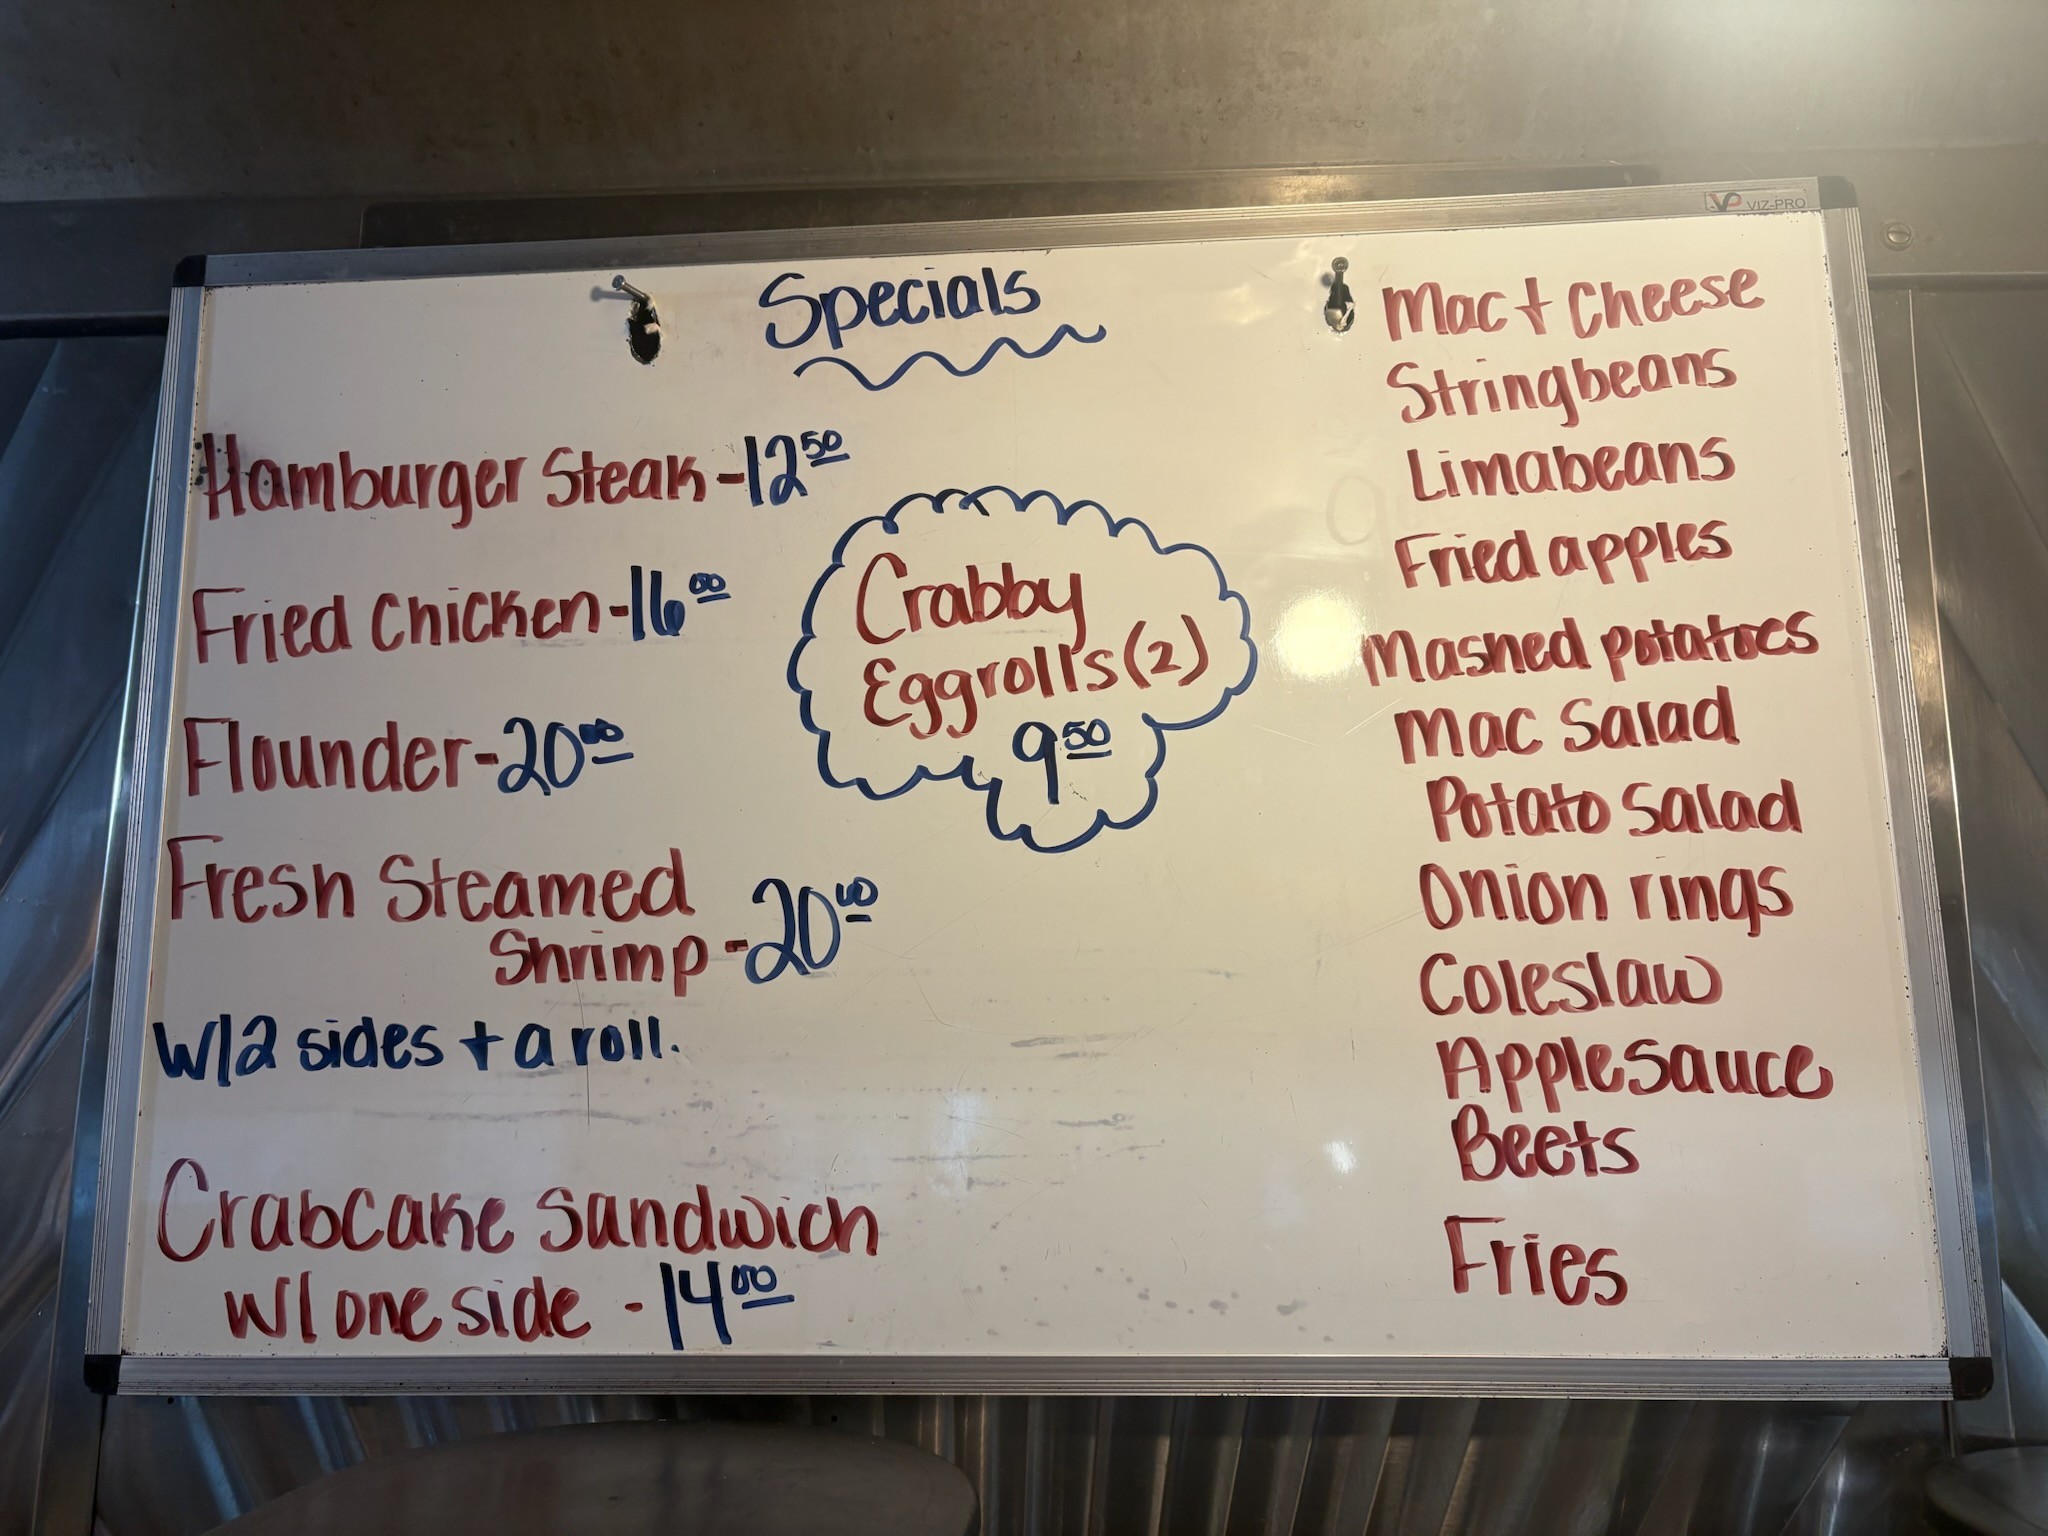 VP VIZ-PRO
Specials
Hamburger Steak - 12 50
Fried Chicken - 16 00
Flounder - 20 00
Fresh Steamed
Shrimp - 20 00
W/ 2 sides + a roll.
Crabcake Sandwich
W/ one side - 14 00
Crabby
Eggrolls (2)
9 50
Mac + Cheese
Stringbeans
Limabeans
Fried apples
Mashed potatoes
Mac Salad
Potato Salad
Onion rings
Coleslaw
Applesauce
Beets
Fries